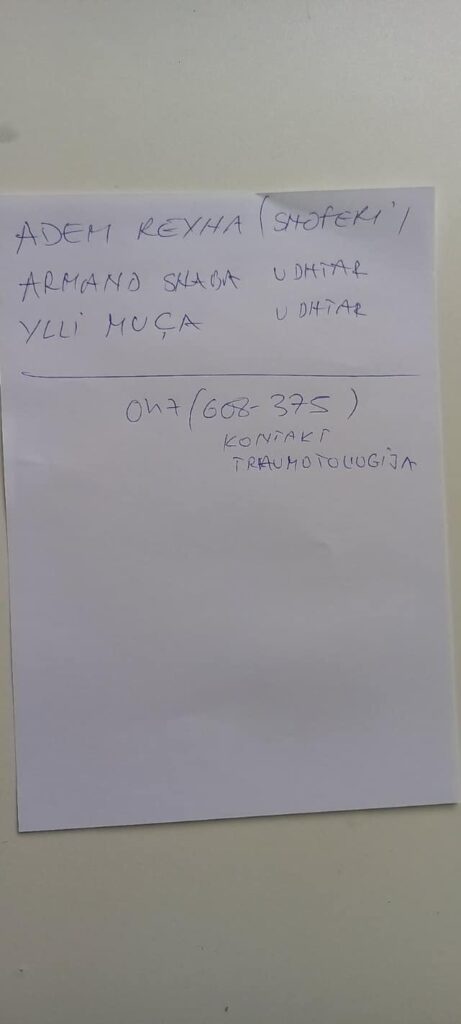 ADEM REXHA (SHOFERI)
ARMAND SHABA UDHTAR
YLLI MUÇA UDHTAR
047 (608-375)
KONTAKT
TRAUMOTOLLOGIJA